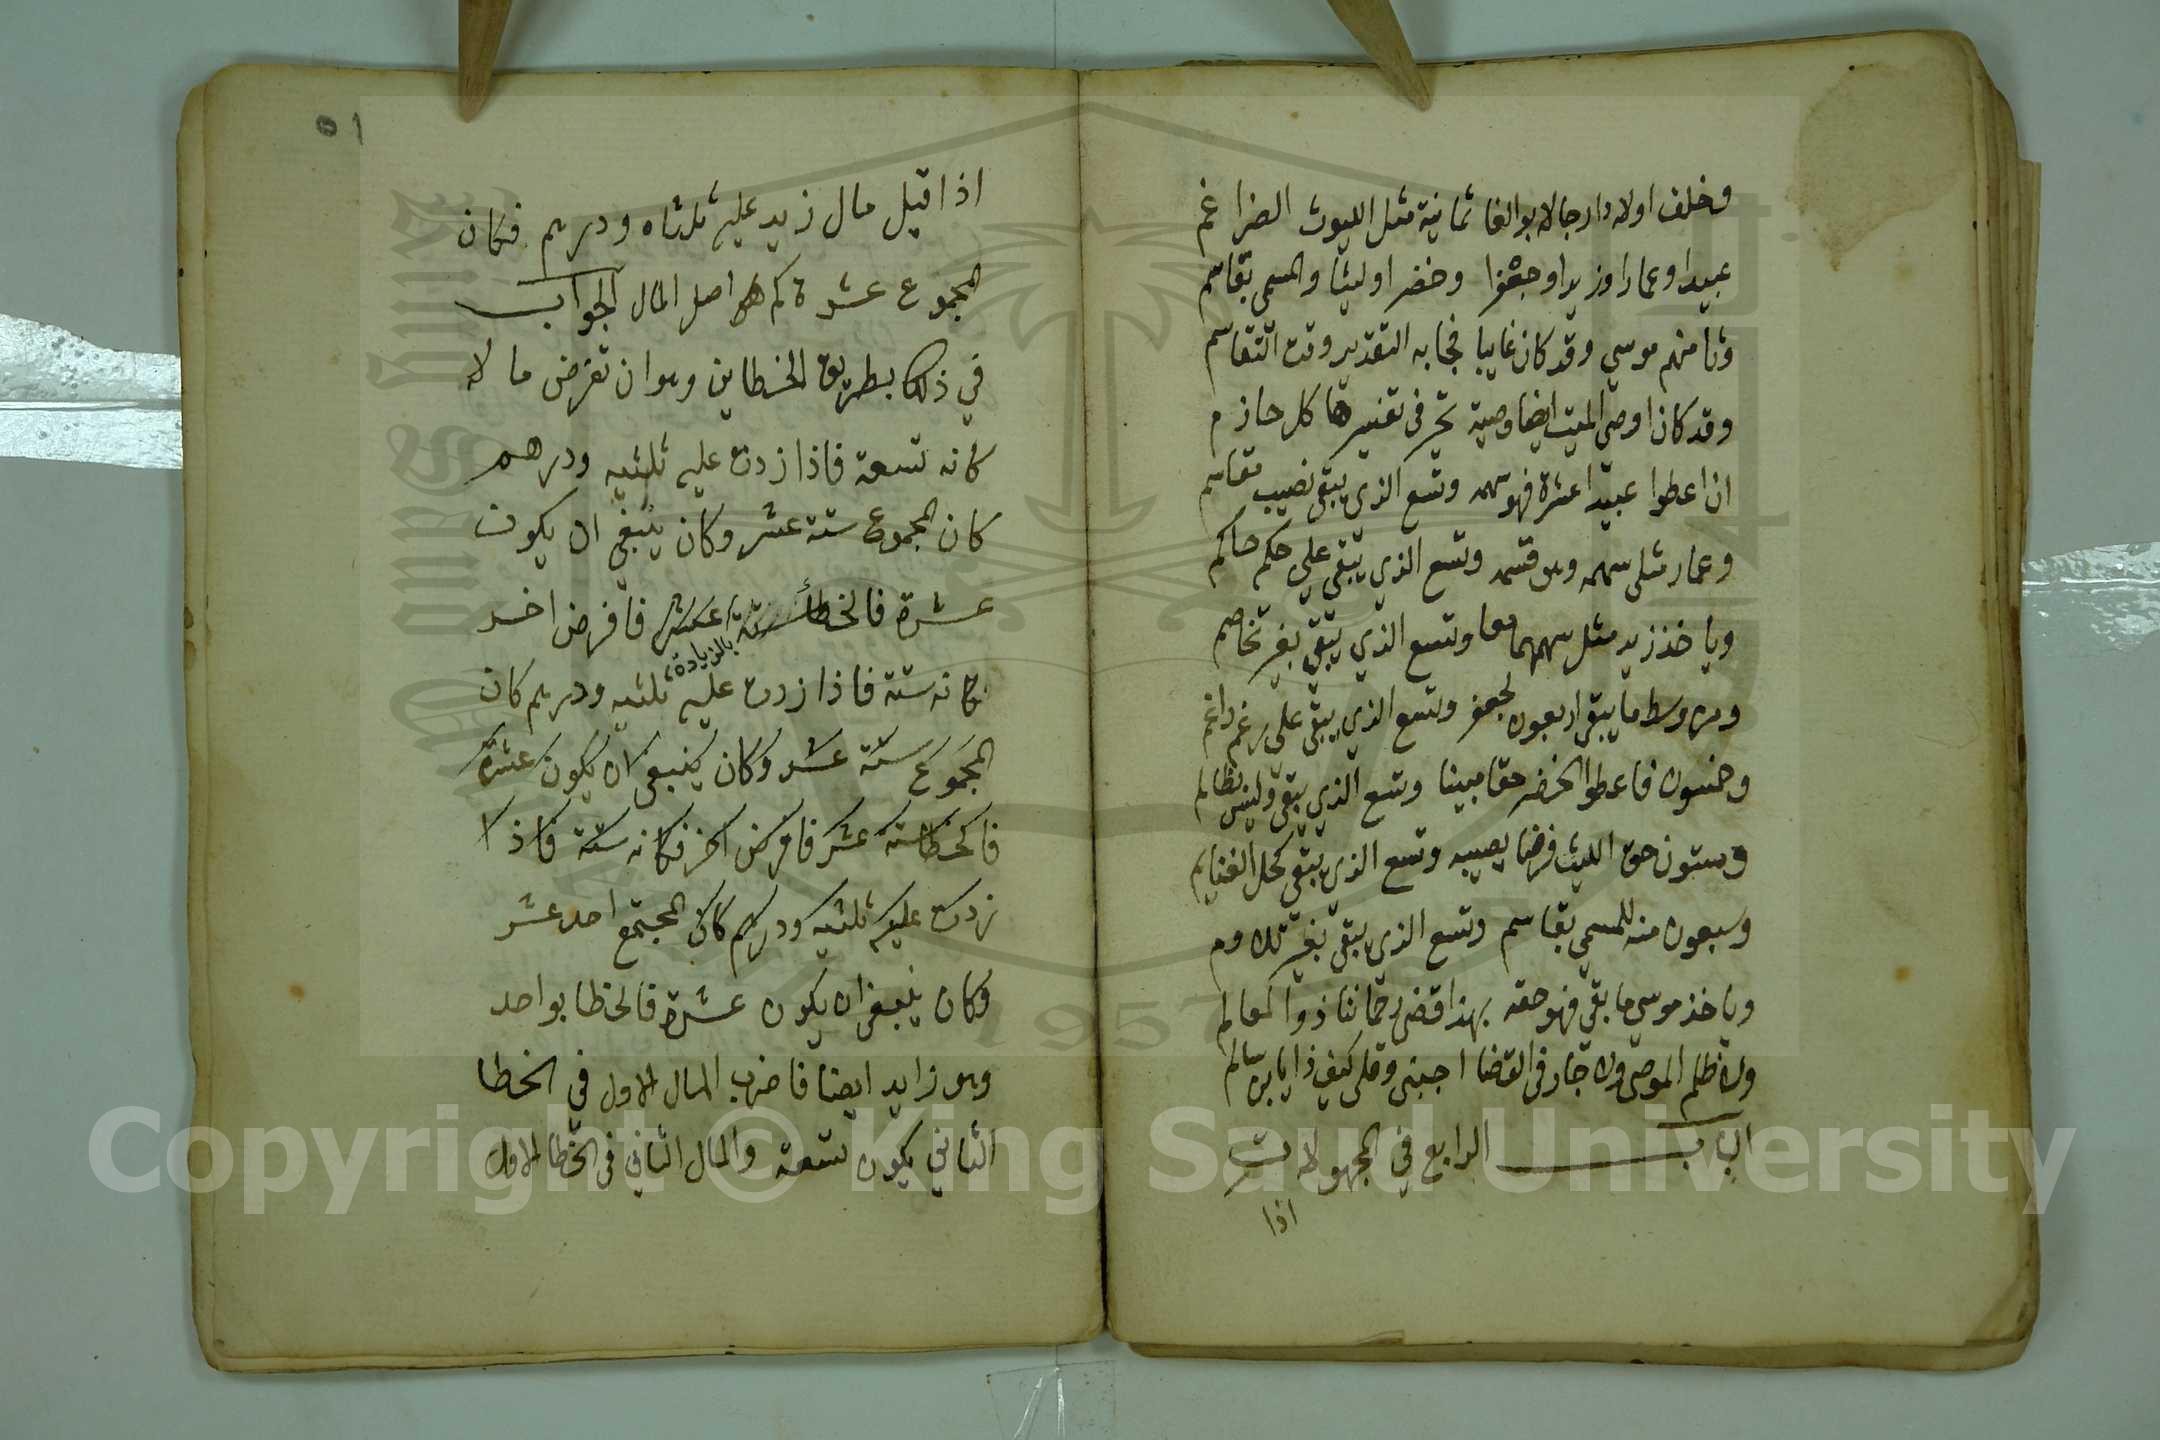 وخلف اولادا رجالا بوالغا ثمانية مثل الليوث الضراغم
عبيدا وعمارا وزيدا وجعفرا وخضرا وليثا والمسمى بقاسم
وثامنهم موسى وقد كان غايبا فجا به التقدير وقت التقاسم
وقد كان اوصى الميت ايضا وصية تحير في تفسيرها كل حازم
ان اعطوا عبيدا عشرة فهو سهمه وتسع الذي يبقى نصيب مقاسم
وعمار مثلى سهمه وهو قسمه وتسع الذي يبقى على حكم حاكم
وياخذ زيد مثل سهمهما معا وتسع الذي يبقى بغير تخاصم
ومن وسط ما يبقى اربعون لجعفر وتسع الذي يبقى على رغم راغم
وخمسون فاعطوا الخضر حقا مبينا وتسع الذي يبقى وليس بظالم
وستون حق الليث فرضا يصيبه وتسع الذي يبقى كحل الغنايم
وسبعون منه للمسمى بقاسم وتسع الذي يبقى بغير
وياخذ موسى ما بقى فهو حقه بهذا قضى رحماننا ذو المعالم
ولا ظلم الموصى ولا جار في القضا اجبنى وقل لى كيف ذا يابن سالم
الباب الرابع في المجهولات
اذا
٥١
اذا قيل مال زيد عليه ثلثاه ودرهم فكان
المجموع عشرة كم هو اصل المال الجواب
في ذلك بطريق الخطاين وهو ان تفرض ما لا
كانه تسعة فاذا زدت عليه ثلثيه ودرهم
كان المجموع ستة عشر وكان ينبغي ان يكون
عشرة فالخطا ستة عشر فافرض اخر
بالزيادة
كانه ستة فاذا زدت عليه ثلثيه ودرهم كان
المجموع ستة عشر وكان ينبغى ان يكون عشرة
فالخطا ستة عشر فافرض اخر فكانه ستة فاذا
زدت عليه ثلثيه ودرهم كان المجتمع احد عشر
وكان ينبغى ان يكون عشرة فالخطا بواحد
وهو زايد ايضا فاضرب المال الاول في الخطا
الثاني يكون تسعة والمال الثاني في الخطا الاول
Copyright © King Saud University
King Saud University
1957